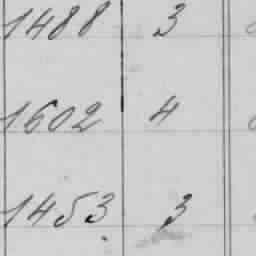 1488 3
1602 4
1453 3